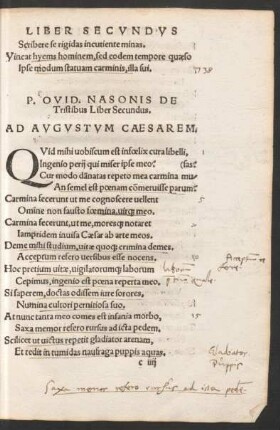 LIBER SECVNDVS
Scribere se rigidas incutiente minas.
Vincat hyems hominem, sed eodem tempore quæso
Ipse modum statuam carminis, illa sui.
P. OVID. NASONIS DE
Tristibus Liber Secundus.
AD AVGVSTVM CAESAREM.
QVid mihi uobiscum est infœlix cura libelli,
Ingenio perij qui miser ipse meo? (sas?
Cur modo dānatas repeto mea carmina mu-
An semel est pœnam cōmeruisse parum?
Carmina fecerunt ut me cognoscere uellent 5
Omine non fausto fœmina, uirq; meo.
Carmina fecerunt, ut me, moresq; notaret
Iampridem inuisa Cæsar ab arte meos.
Deme mihi studium, uitæ quoq; crimina demes.
Acceptum refero uersibus esse nocens. 10
Hoc pretium uitæ, uigilatorumq; laborum
Cepimus, ingenio est pœna reperta meo,
Si saperem, doctas odissem iure sorores,
Numina cultori perniciosa suo,
At nunc tanta meo comes est insania morbo, 15
Saxa memor refero rursus ad icta pedem,
Scilicet ut uictus repetit gladiator arenam,
Et redit in tumidas naufraga puppis aquas.
c iiij
Gladiator
Puppis
Saxa memor refero rursus ad icta pedē